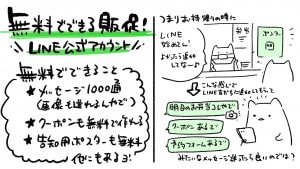 無料でできる販促!
LINE公式アカウント
無料でできること
★メッセージ1000通
(画像も送れるんやで)
★クーポンも無料で作れる
★告知用ポスターも無料
他にもあるヨ!
つまりお持ち帰りの時に
LINE
始めてん
よかったら追加
してなー♪
弁当
ポスター
こんな感じで
LINE友だち追加してもらって
明日のお弁当しゃけやで
クーポンあるで
予約フォームあるで
みたいなメッセージ送ったら良いのでは?